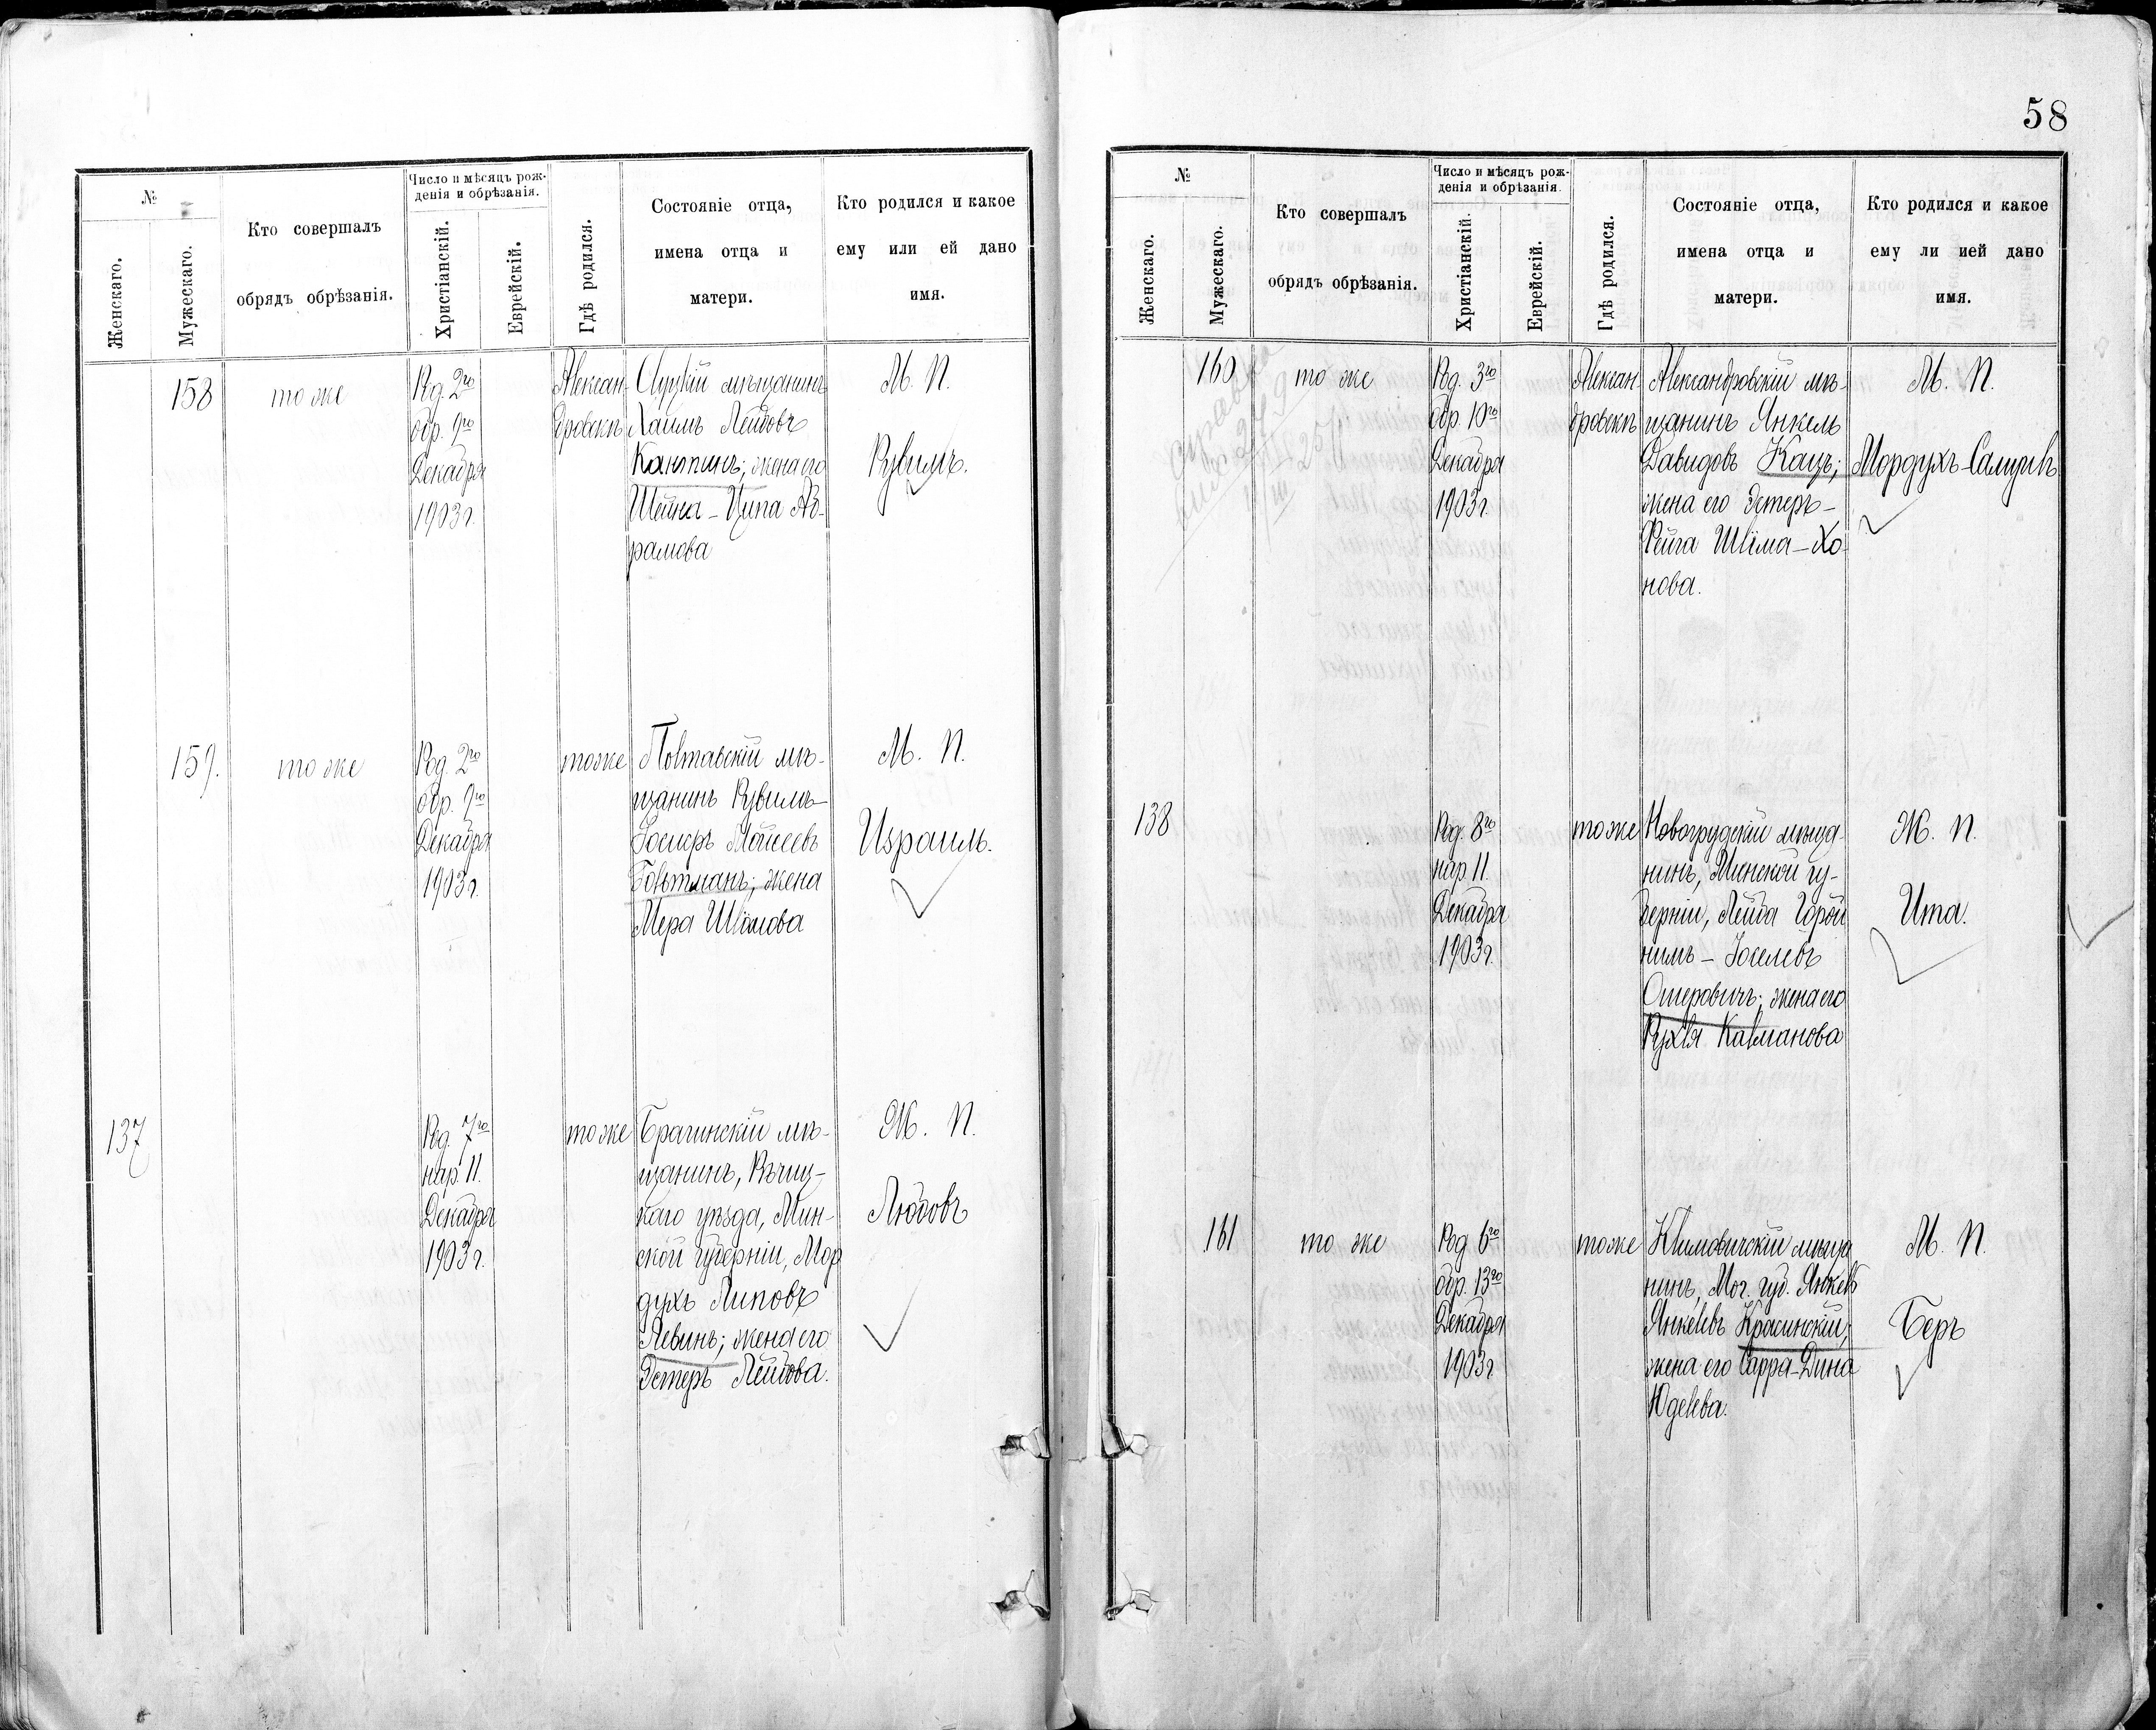 №
Женскаго.
Мужескаго.
Кто совершалъ
обрядъ обрѣзанія.
Число и мѣсяцъ рож-
денія и обрѣзанія.
Христіанскій.
Еврейскій.
Гдѣ родился.
Состояніе отца,
имена отца и
матери.
Кто родился и какое
ему или ей дано
имя.
158
тоже
Род. 2го
обр. 9го
Декабря
1903 г.
Александ-
ровскъ
Слуцкій мѣщанинъ
Хаимъ Лейбовъ
Кантинъ; жена его
Шейна-Ципа Аб-
рамова
М. П.
Рувимъ.
159.
тоже
Род. 2го
обр. 9го
Декабря
1903 г.
тоже
Полтавскій мѣ-
щанинъ Рувимъ-
Іосифъ Моисеевъ
Гольтманъ; жена
Мера Шлёмова
М. П.
Израиль.
137
Род. 7го
нар. 11.
Декабря
1903 г.
тоже
Брагинскій мѣ-
щанинъ, Рѣчиц-
каго уѣзда, Мин-
ской губерніи, Мор
духъ Липовъ
Левинъ; жена его
Эстеръ Лейбова.
Ж. П.
Любовь
58
№
Женскаго.
Мужескаго.
Кто совершалъ
обрядъ обрѣзанія.
Число и мѣсяцъ рож-
денія и обрѣзанія.
Христіанскій.
Еврейскій.
Гдѣ родился.
Состояніе отца,
имена отца и
матери.
Кто родился и какое
ему ли ией дано
имя.
справка
160
тоже
Род. 3го
обр. 10го
Декабря
1903 г.
Алексан-
дровскъ
Александровскій мѣ-
щанинъ Янкель
Давидовъ Кацъ;
жена его Эстеръ-
Фейга Шлёма-Хо-
нова.
М. П.
Мордухъ-Самуилъ
138
Род. 8го
нар. 11.
Декабря
1903 г.
тоже
Новогрудскій мѣща-
нинъ, Минской гу-
берніи, Лейба Горой
нимъ-Іоселевъ
Ошеровичъ; жена его
Рухля Калманова
Ж. П.
Ита.
161
тоже
Род. 6го
обр. 13го
Декабря
1903 г.
тоже
Климовичскій мѣща
нинъ, Мог. губ. Янкель
Янкелевъ Красинскій;
жена его Сарра-Дина
Юделева.
М. П.
Беръ